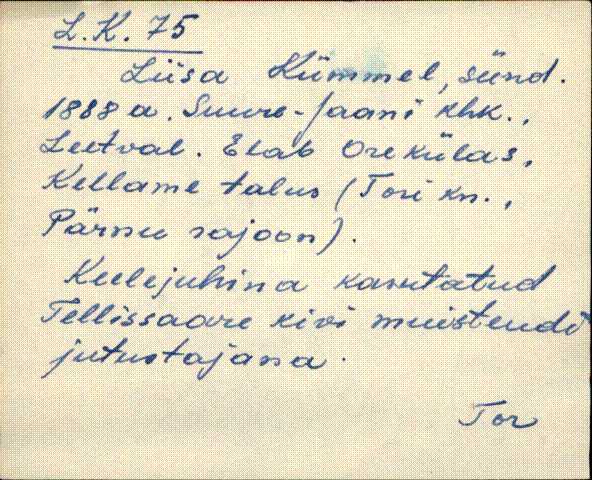 L.K. 75
Liisa Kümmel, sünd.
1888 a. Suure-Jaani khk.,
Leetval. Elab Oreküľas,
Kellame talus (Tori kn.,
Pärnu rajoon).
Keelejuhina kasutatud
Tellissaare kivi muistendi
jutustajana.
Tor